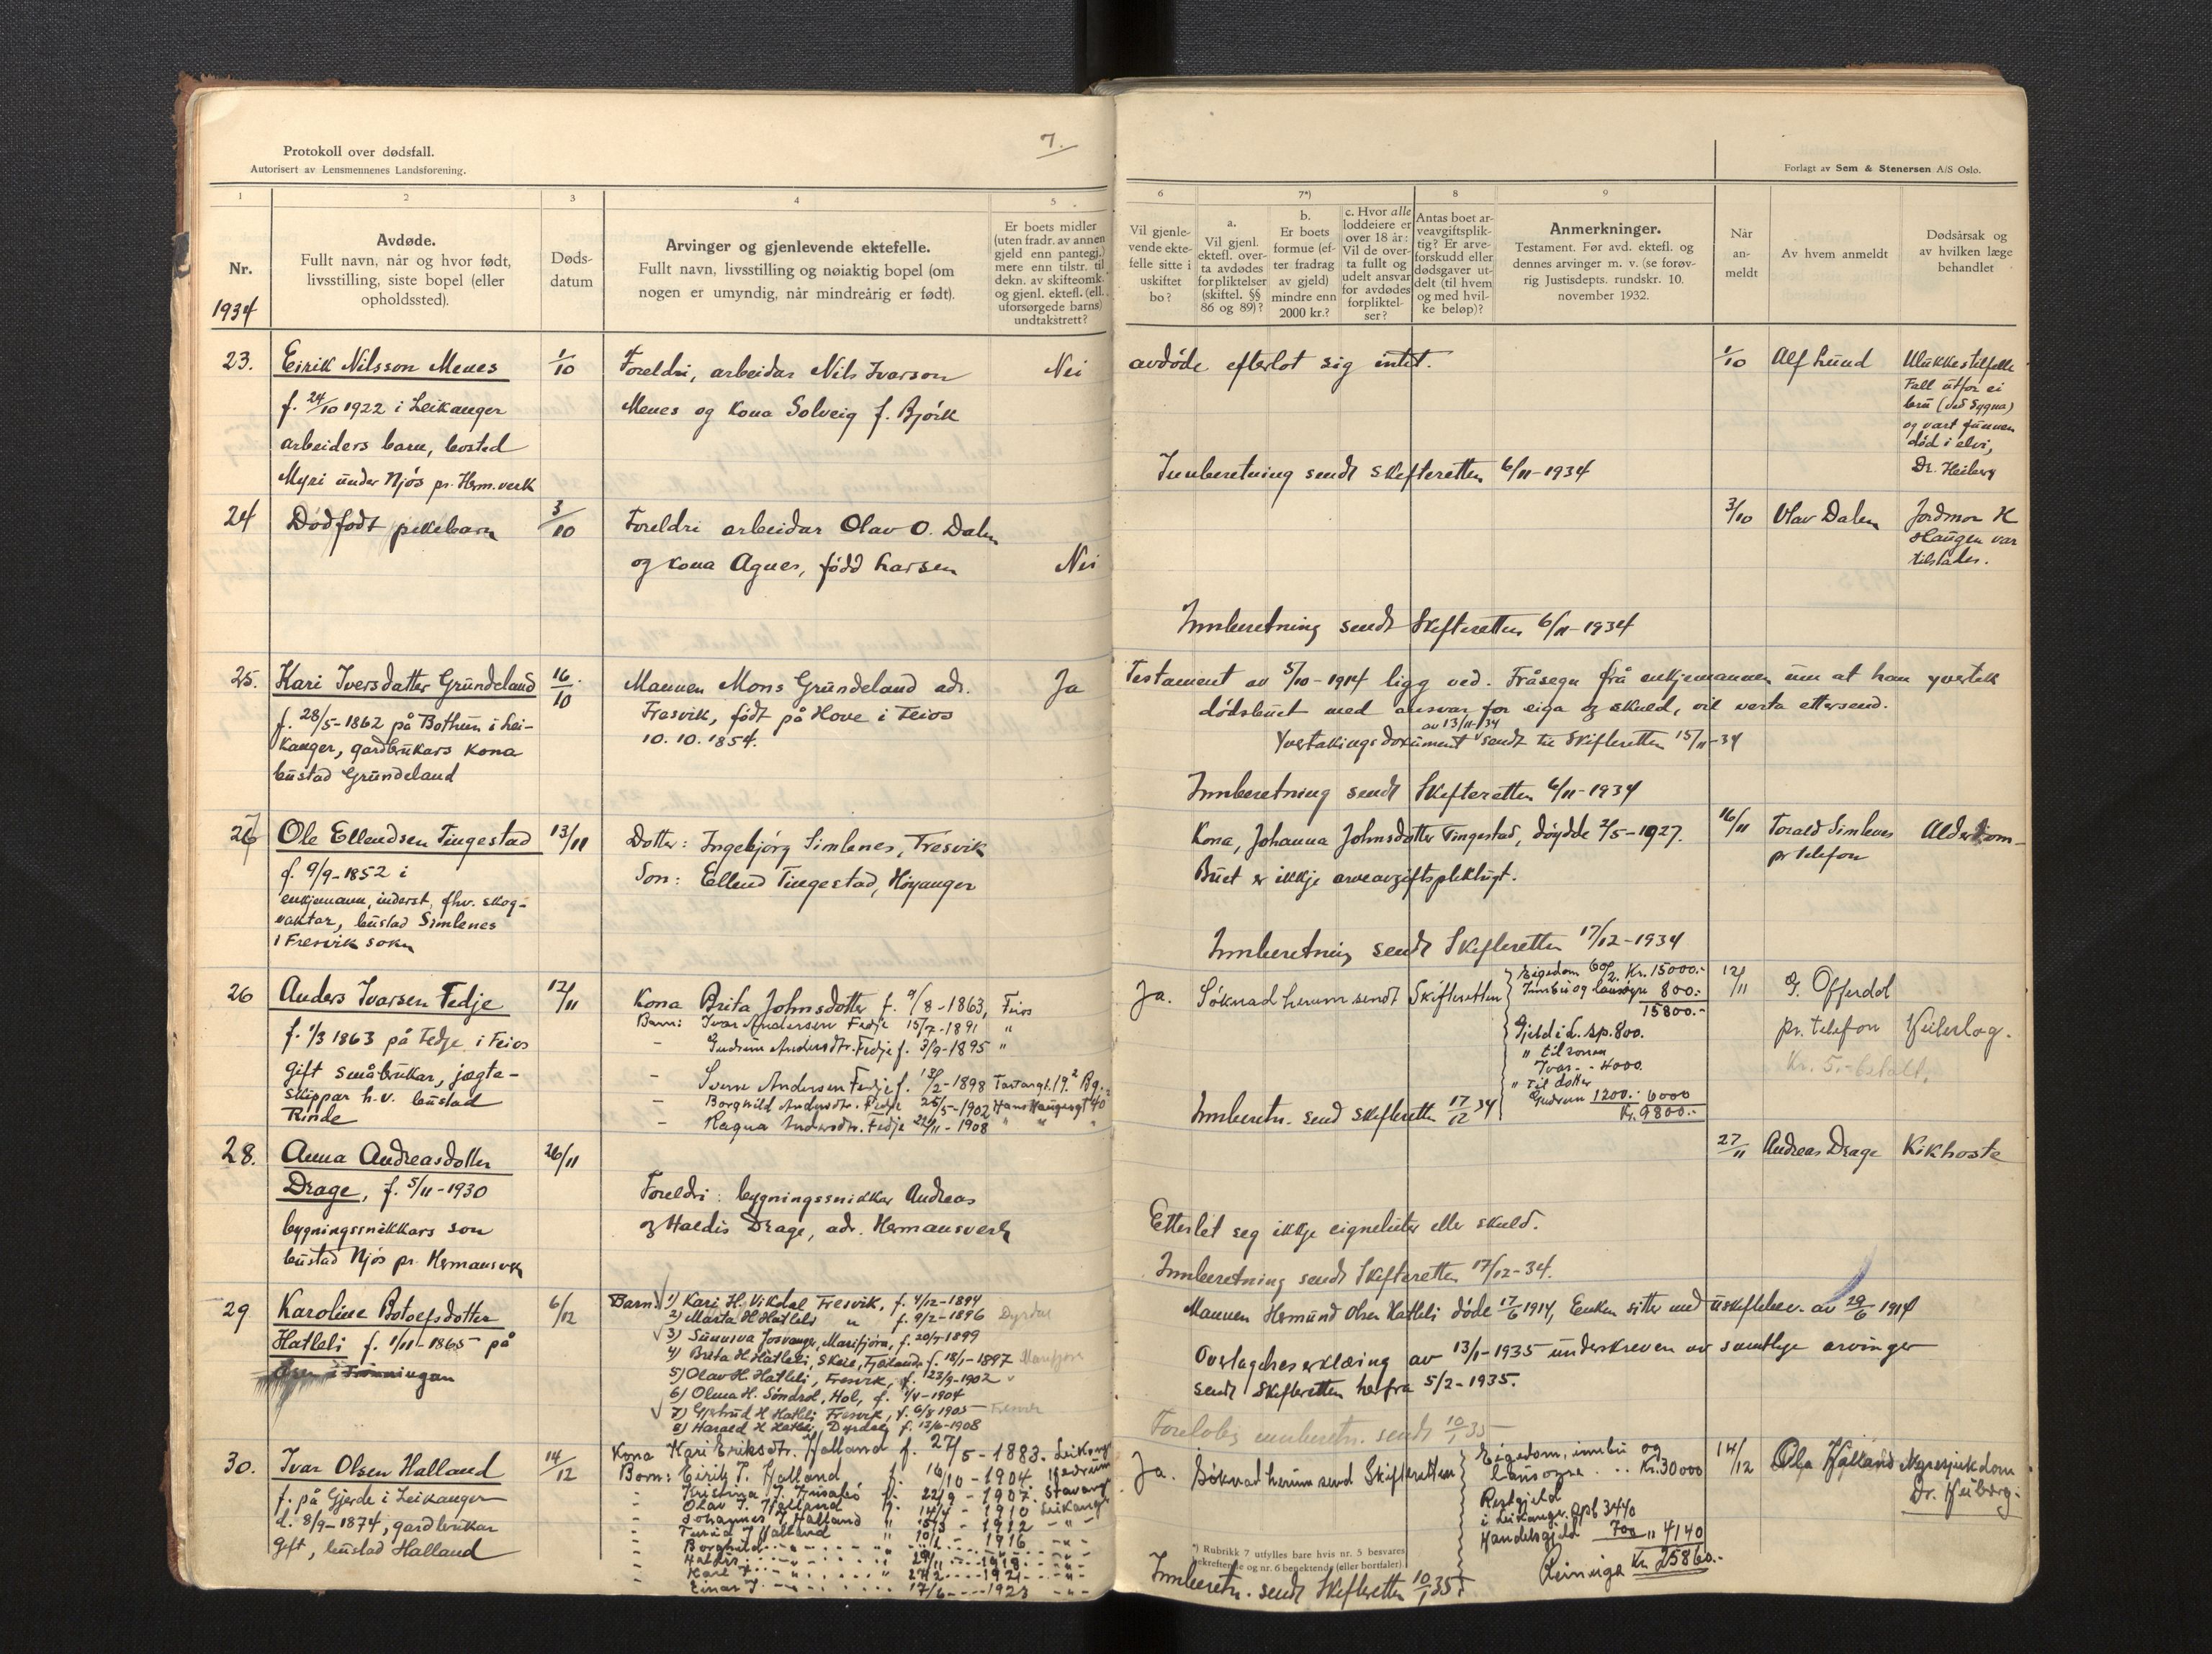 7.
Protokoll over dødsfall.
Autorisert av Lensmennenes Landsforening.
Forlagt av Sem & Stenersen A/S Oslo.
1
2
3
4
5
6
7*)
8
9
Nr.
1934
Avdøde.
Fullt navn, når og hvor født,
livsstilling, siste bopel (eller
opholdssted).
Døds-
datum
Arvinger og gjenlevende ektefelle.
Fullt navn, livsstilling og nøiaktig bopel (om
nogen er umyndig, når mindreårig er født).
Er boets midler
(uten fradr. av annen
gjeld enn pantegj.)
mere enn tilstr. til
dekn. av skifteomk.
og gjenl. ektefl. (ell.
uforsørgede barns)
undtakstrett?
Vil gjenle-
vende ekte-
felle sitte i
uskiftet
bo?
a.
Vil gjenl.
ektefl. over-
ta avdødes
forpliktelser
(skiftel. §§
86 og 89)?
b.
Er boets
formue (ef-
ter fradrag
av gjeld)
mindre enn
2000 kr.?
c. Hvor alle
loddeiere er
over 18 år:
Vil de over-
ta fullt og
udelt ansvar
for avdødes
forpliktel-
ser?
Antas boet ar-
veavgiftsplik-
tig? Er arve-
forskudd eller
dødsgaver ut-
delt (til hvem
og med hvil-
ke beløp)?
Anmerkninger.
Testament. Før avd. ektefl. og
dennes arvinger m. v. (se forøv-
rig Justisdepts. rundskr. 10.
november 1932.
Når
an-
meldt
Av hvem anmeldt
Dødsårsak og
av hvilken læge
behandlet
23.
Eirik Nilsson Menes
f. 24/10 1922 i Leikanger
arbeiders barn, bosted
Myri under Njøs pr. Herm.verk
1/10
Foreldri, arbeidar Nils Ivarson
Menes og kona Solveig f. Bjørk
Nei
avdøde efterlot sig intet.
Innberetning sendt skifteretten 6/11-1934
1/10
Alf Lund
Ulukkestilfelle
Fall utfor ei
bru (ved Sygna)
og vart funnen
død i elvi,
Dr. Heiberg
24
Dødfødt pikebarn
3/10
Foreldri arbeidar Olav O. Dalen
og kona Agnes, født Larsen
Nei
Innberetning sendt Skifteretten 6/11-1934
3/10
Olav Dalen
Jordmor K
Haugen var
tilstades.
25.
Kari Iversdatter Grundeland
f. 28/5-1862 på Bothun i Lei-
kanger, gardbrukars kona
bustad Grundeland
16/10
Mannen Mons Grundeland adr.
Fresvik, født på Hove i Feios
10.10.1854.
Ja
Testament av 5/10-1914 ligg ved. Fråsegn frå enkjemannen um at han yvertek
dødsbuet med ansvar for eiga og skuld, vil verta ettersend.
av 13/11-34
Yvertakingsdokument sendt til Skifteretten 15/11-34
Innberetning sendt Skifteretten 6/11-1934
27
Ole Ellendsen Tingestad
f. 9/9-1852 i
enkjemann, inderst, fhv. skog-
vaktar, bustad Simlenes
i Fresvik sokn
13/11
Dotter: Ingebjørg Simlenes, Fresvik
Son: Ellend Tingestad, Høyanger
Kona, Johanna Johnsdotter Tingestad, døydde 2/5-1927.
Buet er ikkje arveavgiftspliktugt.
Innberetning sendt Skifteretten 17/12-1934
16/11
Torald Simlenes
pr telefon
Alderdom
26
Anders Ivarsen Fedje
f. 1/3 1863 på Fedje i Feios
Gift småbrukar, jægte-
skippar h.v. bustad
Rinde
12/11
Kona Brita Johnsdotter f. 9/8-1863, Feios
Barn: Ivar Andersen Fedje 15/7-1891 "
- Gudrun Andersdtr. Fedje f. 3/9-1895 "
- Sverre Andersen Fedje f. 18/2-1898 Tartargt. 19² Bg.
- Borghild Andersdtr. Fedje 25/5-1902 Hans Haugesgt 40²
- Ragna Andersdtr. Fedje 22/11-1908 " " "
Ja.
Søknad herum sendt Skifteretten
Eigedom 60/2. Kr. 15000.-
Innbu og lausøyre 800.-
15800.-
Gjeld i L. sp. 800.
" til sonen
Ivar - - 4000
" til dotter
Gudrun 1200.- 6000
Kr. 9800.-
Innberetn. send Skifteretten 17/12 34
12/11
G. Offerdal
pr. telefon
Kr. 5.- betalt.
Heileslag.
28.
Anna Andreasdotter
Drage, f. 5/11-1930
bygningssnikkars son
bustad Njøs pr. Hermansverk
26/11
Foreldri: bygningssnikkar Andreas
og Haldis Drage, adr. Hermansverk
Etterlet seg ikkje eigneluter eller skuld.
Innberetning sendt Skifteretten 17/12-34.
27/11
Andreas Drage
Kikhoste
29
Karoline Botolfsdotter
Hatleli f. 1/11-1865 på
6/12
Barn: 1) Kari H. Vikdal Fresvik, f. 4/12-1894
2) Marta H Hatleli " f. 9/2-1896 Dyrdal
3) Sunniva Josvanger, Marifjøra, f. 20/7-1899
4) Brita H Hatleli, Skeie, Fjærland f. 18/1-1897 Marifjøra
5) Olav H. Hatleli, Fresvik, f. 23/9-1902
6) Olina H. Søndrol, Hol, f. 1/4-1904
7) Gjertrud H Hatleli Fresvik, f. 6/8 1905 Fresvik
8) Harald H Hatleli, Dyrdal, f. 13/6-1908
Mannen Hermund Olsen Hatleli døde 17/6 1914, Enken sitter med uskiftebev. av 29/6 1914
Overtagelseserklæring av 13/1-1935 underskreven av samtlige arvinger
sendt Skifteretten herfra 5/2-1935.
Foreløbig innberetn. sendt 10/1 35
30.
Ivar Olsen Halland
f. på Gjerde i Leikanger
d. 8/9-1874, gardbrukar
Gift, bustad Halland
14/12
Kona Kari Eriksdtr. Halland f. 27/5-1883. Leikang
Born: Eirik I. Halland f. 16/10-1904
- Kristina I. f. 22/9-1907. Stavang
- Olav I. Halland f. 14/4-1910 Leikanger
- Johannes I Halland " 15/3-1912 - " -
- Turid I Halland " 10/2-1916 - " -
- Borghild
- 29/11 - 1918 - " -
- Karl I - 27/2 - 1921 - " -
- Einar I - 17/6 - 1923 - " -
Ja.
Søknad herum send Skifteretten
Eigedom, innbu og
lausøyre . .. Kr. 30000
Restgjeld
i Leikanger Spb 3440
Handelsgjeld 700 " 4140
Reininga Kr 25860.-
14/12
Ola Halland
Nyresjukdom
Dr. Heiberg.
*) Rubrikk 7 utfylles bare hvis nr. 5 besvares
bekreftende og nr. 6 benektende (eller bortfaler)
Innberetn. sendt Skifteretten 10/1 35.